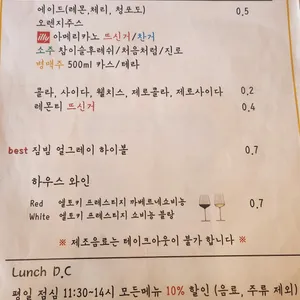 에이드(레몬,체리, 청포도) 0.5
오렌지주스
illy 아메리카노 뜨신거/찬거
소주 참이슬후레쉬/처음처럼/진로
병맥주 500ml 카스/테라
콜라, 사이다, 웰치스, 제로콜라, 제로사이다 0.2
레몬티 뜨신거 0.4
best 짐빔 얼그레이 하이볼 0.7
하우스 와인
Red 엘토키 프레스티지 카베르네소비뇽 0.7
White 엘토키 프레스티지 소비뇽 블랑
※ 제조음료는 테이크아웃이 불가 합니다 ※
Lunch D.C
평일 점심 11:30~14시 모든메뉴 10% 할인 (음료, 주류 제외)